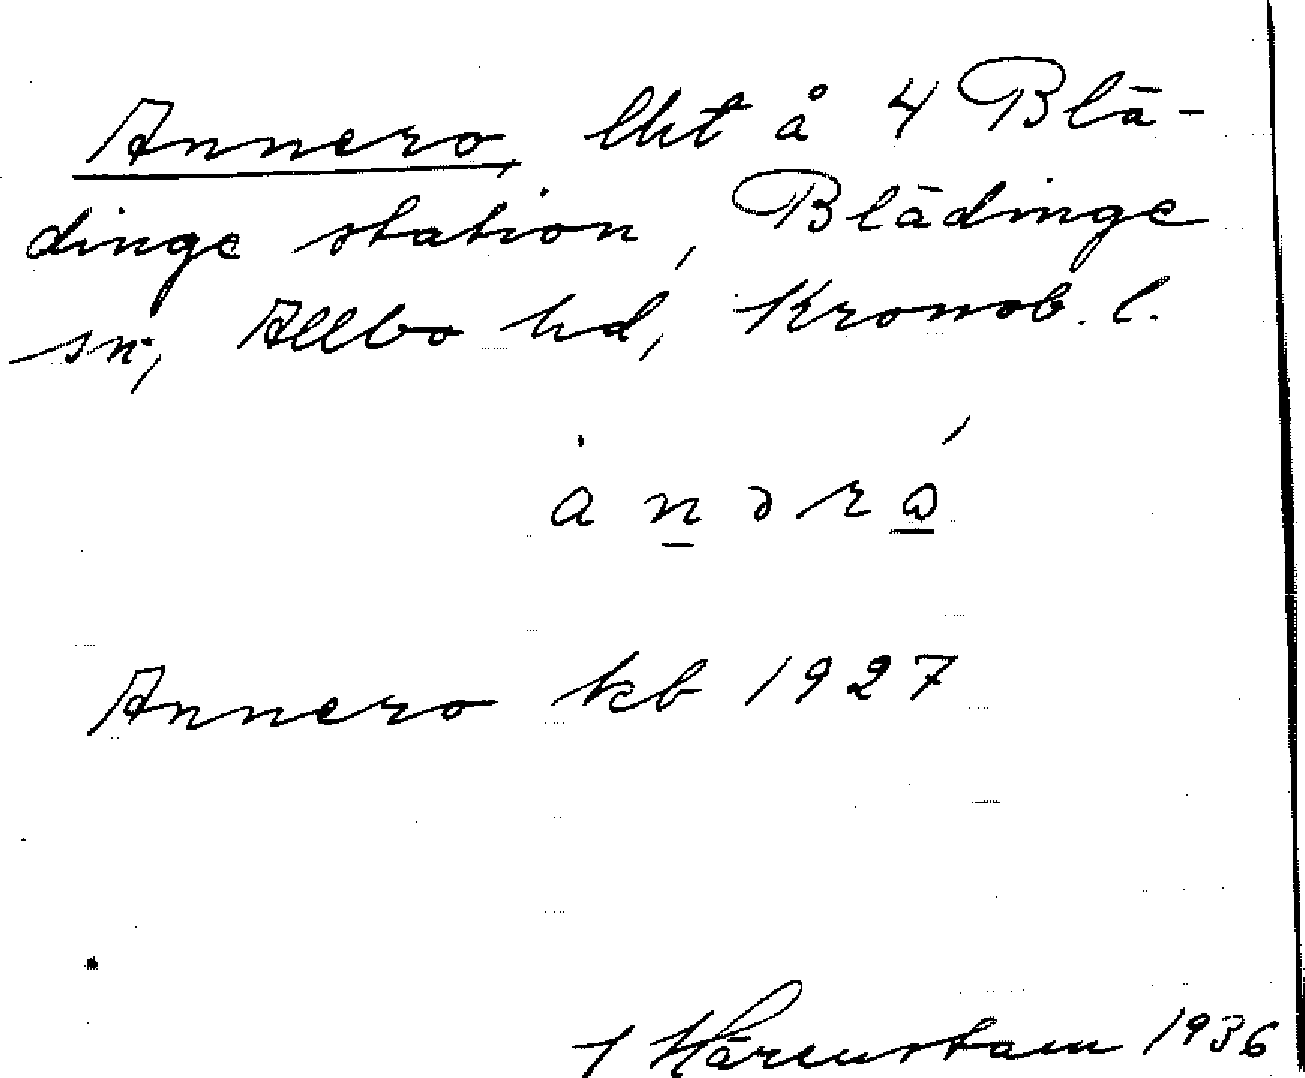 Annero, lht å 4 Blä-
dinge station, Blädinge
sn, Allbo hd, Kronob. l.
Annero kb 1927
Härenstam 1936